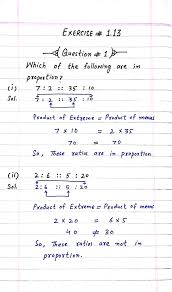 EXERCISE # 1.13
Question # 1
Which of the following are in
proportion?
(i) 7 : 2 :: 35 : 10
Sol. 7 : 2 :: 35 : 10
Product of Extreme = Product of means
7 × 10 = 2 × 35
70 = 70
So, These ratios are in proportion
(ii) 2 : 6 :: 5 : 20
Sol. 2 : 6 :: 5 : 20
Product of Extreme = Product of means
2 × 20 = 6 × 5
40 ≠ 30
So, These ratios are not in
proportion.